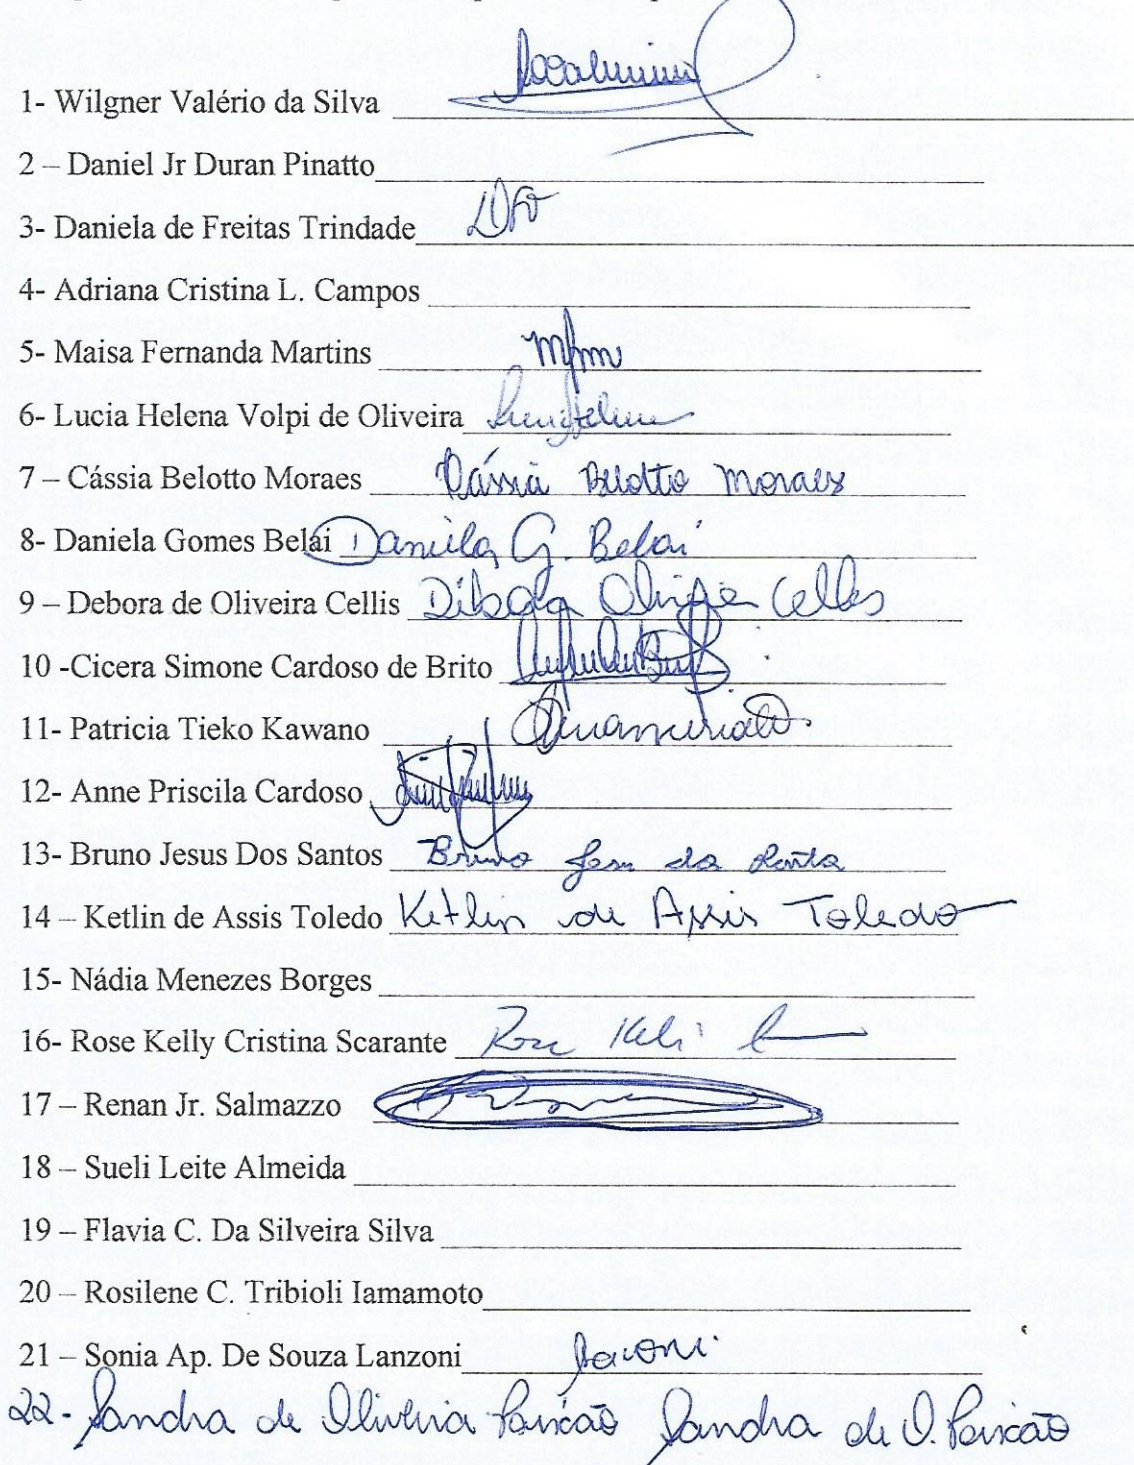 1- Wilgner Valério da Silva
2 – Daniel Jr Duran Pinatto
3- Daniela de Freitas Trindade
4- Adriana Cristina L. Campos
5- Maisa Fernanda Martins mfm
6- Lucia Helena Volpi de Oliveira
7 – Cássia Belotto Moraes Cássia Belotto Moraes
8- Daniela Gomes Belai Daniela G. Belai
9 – Debora de Oliveira Cellis Debora Oliveira Cellis
10 -Cicera Simone Cardoso de Brito
11- Patricia Tieko Kawano
12- Anne Priscila Cardoso
13- Bruno Jesus Dos Santos Bruno
14 – Ketlin de Assis Toledo Ketlin de Assis Toledo
15- Nádia Menezes Borges
16- Rose Kelly Cristina Scarante Rose Keli
17 – Renan Jr. Salmazzo
18 – Sueli Leite Almeida
19 – Flavia C. Da Silveira Silva
20 – Rosilene C. Tribioli Iamamoto
21 – Sonia Ap. De Souza Lanzoni
22- Sandra de Oliveira Paixão Sandra de O. Paixão